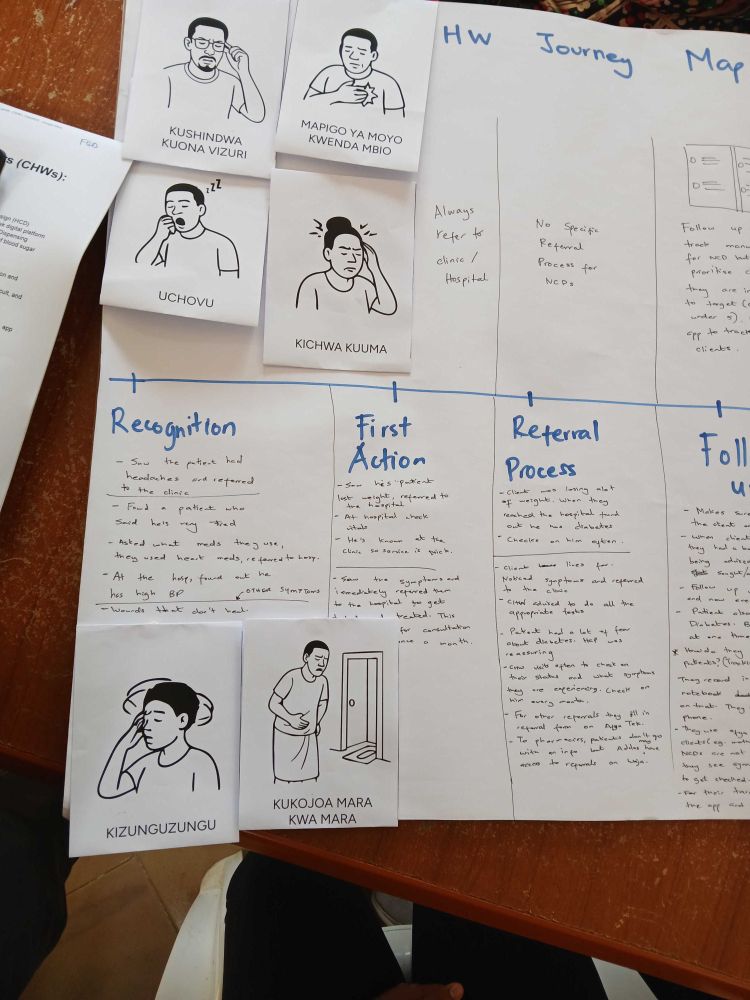 HW Journey Map
KUSHINDWA
KUONA VIZURI
MAPIGO YA MOYO
KWENDA MBIO
zzZ
UCHOVU
KICHWA KUUMA
FGD
s (CHWs):
sign (HCD)
digital platform
Dispensing
f blood sugar
on and
cult, and
app
Always
refer to
clinic /
Hospital
No Specific
Referral
Process for
NCDs
Follow up
track manu
for NCD but
prioritise c
they are in
to target (
under 5).
app to track
clients.
Recognition
- Saw the patient had
headaches and referred
to the clinic
- Found a patient who
said he is very tired
- Asked what meds they use,
they used heart meds, referred to hosp.
- At the hosp, found out he
has high BP
OTHER SYMPTOMS
- Wounds that don't heal.
KIZUNGUZUNGU
KUKOJOA MARA
KWA MARA
First
Action
- Saw his patient
lost weight, referred to
the hospital
- At hospital check
vitals
- He's known at the
clinic so service is quick.
- Saw the symptoms and
immediately referred them
to the hospital to get
treated. This
for consultation
once a month.
Referral
Process
- Client was losing alot
of weight. When they
reached the hospital found
out he has diabetes
- Checks on him often.
- Client lives far.
Noticed symptoms and referred
to the clinic
- CHW advised to do all the
appropriate tests
- Patient had a lot of fear
about diabetes. HCP was
reassuring
- CHW visits often to check on
their status and what symptoms
they are experiencing. Check on
him every month.
- For other referrals they fill in
referral form on Afya Tek.
- To pharmacies, patients don't go
with an info but Addos have
access to referrals on
Foll
u
- Makes sure
the client
- When client
they had a
being advised
sought
- Follow up
and now
- Patient also
Diabetes. B
at one
* How do they
patients? (Track
They record in
notebook
on that. They
phone.
- They use afya
clients (eg. moth
NCDs are not
they see sym
to get checked.
- For their
the app and